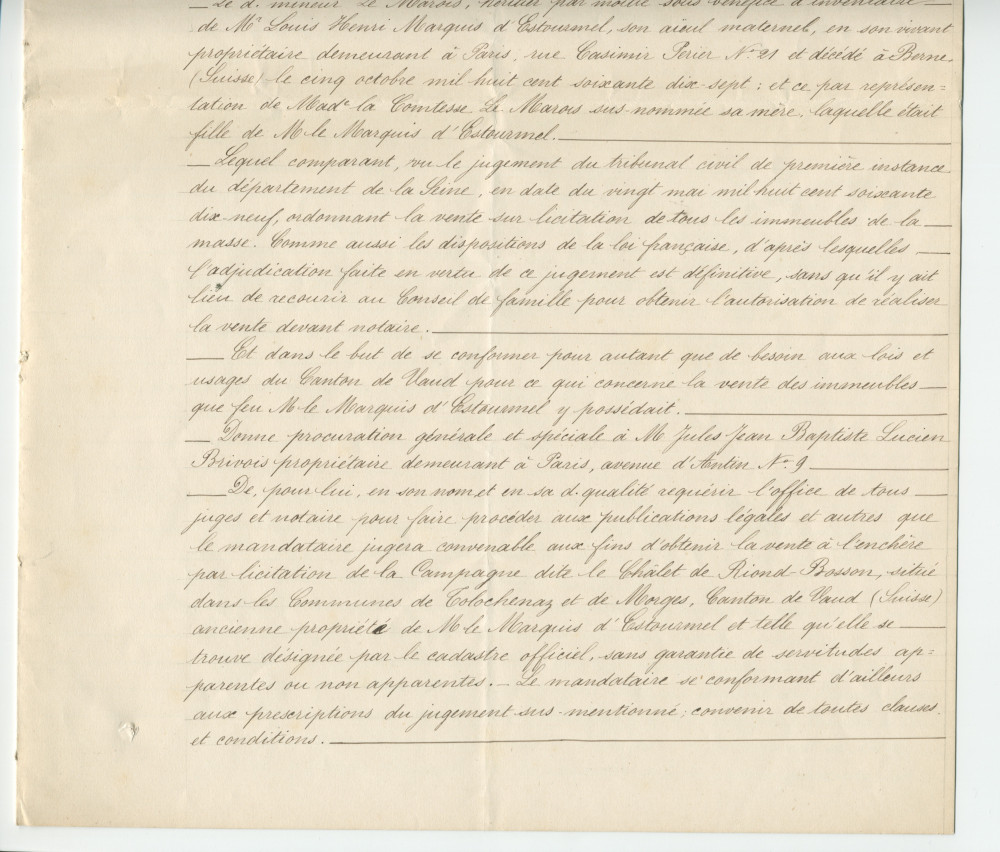 Le d. mineur Le Marois, héritier par moitié sous bénéfice d'inventaire
de Mr Louis Henri Marquis d'Estourmel, son aïeul maternel, en son vivant
propriétaire demeurant à Paris, rue Casimir Perier No 21 et décédé à Berne
(Suisse) le cinq octobre mil huit cent soixante dix-sept ; et ce par représen=
tation de Made la Comtesse Le Marois sus-nommée sa mère, laquelle était
fille de M le Marquis d'Estourmel.
Lequel comparant, vu le jugement du tribunal civil de première instance
du département de la Seine, en date du vingt mai mil huit cent soixante
dix-neuf, ordonnant la vente sur licitation de tous les immeubles de la
masse. Comme aussi les dispositions de la loi française, d'après lesquelles
l'adjudication faite en vertu de ce jugement est définitive, sans qu'il y ait
lieu de recourir au Conseil de famille pour obtenir l'autorisation de réaliser
la vente devant notaire.
Et dans le but de se conformer pour autant que de besoin aux lois et
usages du Canton de Vaud pour ce qui concerne la vente des immeubles
que feu M le Marquis d'Estourmel y possédait.
Donne procuration générale et spéciale à M Jules Jean Baptiste Lucien
Brivois propriétaire demeurant à Paris, avenue d'Antin No 9
De, pour lui, en son nom et en sa d. qualité requérir l'office de tous
juges et notaire pour faire procéder aux publications légales et autres que
le mandataire jugera convenable aux fins d'obtenir la vente à l'enchère
par licitation de la Campagne dite le Châlet de Riond-Bosson, située
dans les Communes de Tolochenaz et de Morges, Canton de Vaud (Suisse)
ancienne propriété de M le Marquis d'Estourmel et telle qu'elle se
trouve désignée par le cadastre officiel, sans garantie de servitudes ap=
parentes ou non apparentes. – Le mandataire se conformant d'ailleurs
aux prescriptions du jugement sus-mentionné ; convenir de toutes clauses
et conditions.